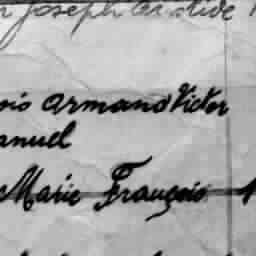 Joseph Aristide
Armand Victor
anuel
Marie François